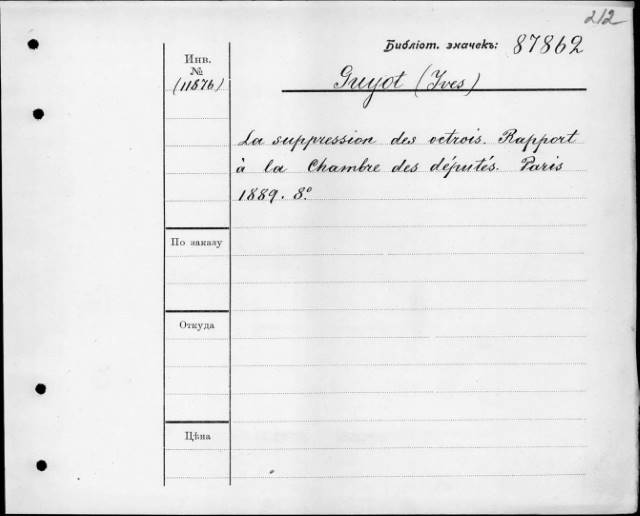 212
Библіот. значекъ: 87862
Инв.
№
(11876)
Guyot (Yves)
La suppression des octrois. Rapport
à la Chambre des députés. Paris
1889. 8º
По заказу
Откуда
Цѣна